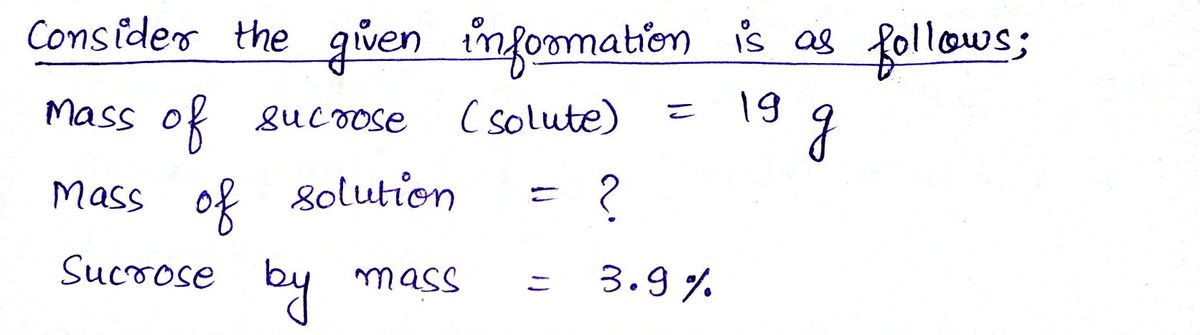 Consider the given information is as follows;
Mass of sucrose (solute) = 19 g
Mass of solution = ?
Sucrose by mass = 3.9 %